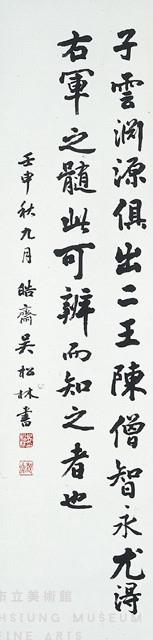 子雲淵源俱出二王陳僧智永尤得
右軍之髓此可辨而知之者也
壬申秋九月 皓齋吳松林書
市立美術館
HSIUNG MUSEUM
FINE ARTS